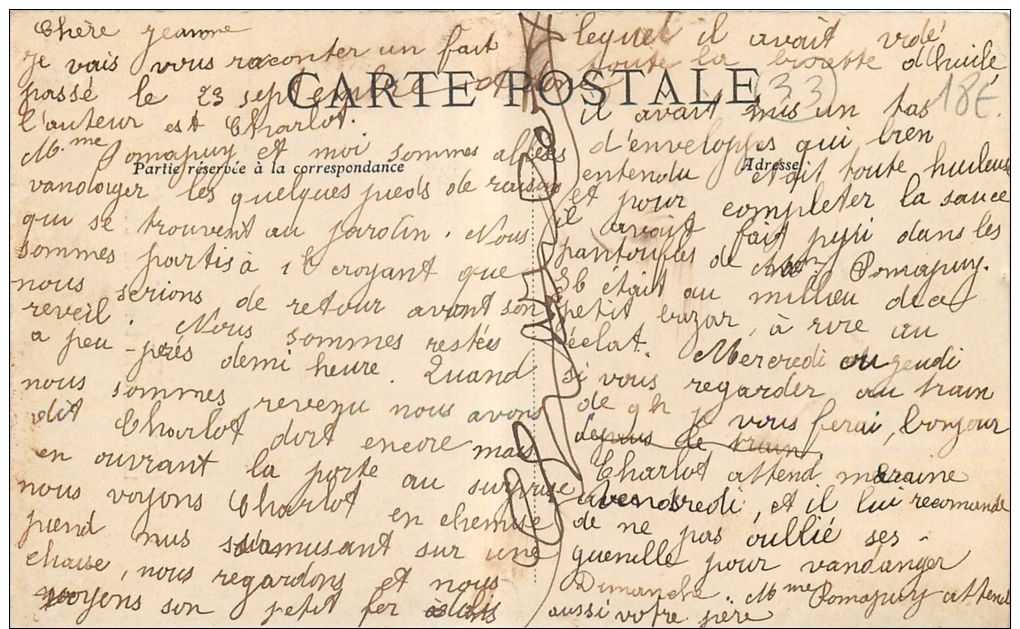 Chère Jeanne
je vais vous raconter un fait
passé le 23 septembre
l'auteur est Charlot.
Mme Pomapuy et moi sommes allées
vandanger les quelques pieds de raisin
qui se trouvent au jardin. Nous
sommes partis à 1h croyant que
nous serions de retour avant son
reveil. Nous sommes restés
a peu-près demi heure. Quand
nous sommes revenu nous avons
dit Charlot dort encore mais
en ouvrant la porte au surprise
nous voyons Charlot en chemise
piend nus s'amusant sur une
chaise, nous regardons et nous
voyons son petit fer
CARTE POSTALE
Partie réservée à la correspondance
Adresse
(33)
18€.
lequel il avait vidé
toute la burette d'huile
il avait mis un tas
d'enveloppes qui bien
entendu était toute huileuse
et pour completer la sauce
il avait fait pipi dans les
pantoufles de Mme Pomapuy.
Il était au milieu de ce
petit bazar, à rire au
éclat. Mercredi ou jeudi
si vous regarder au train
de 9h je vous ferai, bonjour
depuis le train.
Charlot attend maraine
vendredi, et il lui recomande
de ne pas oullié ses
guenille pour vandanger
Dimanche. Mme Pomapuy attend
aussi votre père